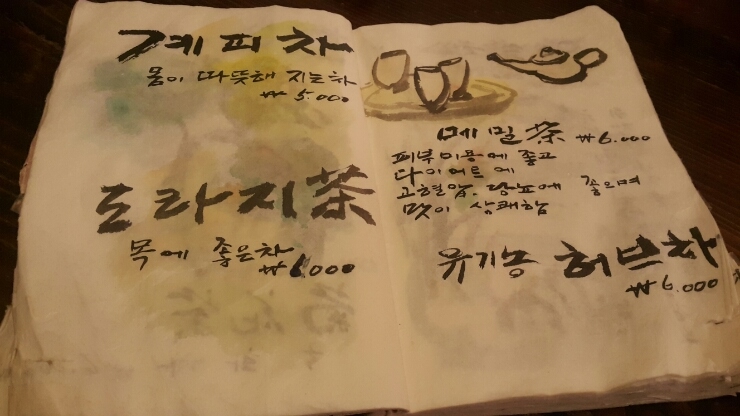 계피차
몸이 따뜻해 지는차
₩5.000
도라지茶
목에 좋은차
₩6.000
메밀茶 ₩6.000
피부미용에 좋고
다이어트에
고혈압.당뇨에 좋으며
맛이 상쾌함
유기농 허브차
₩6.000